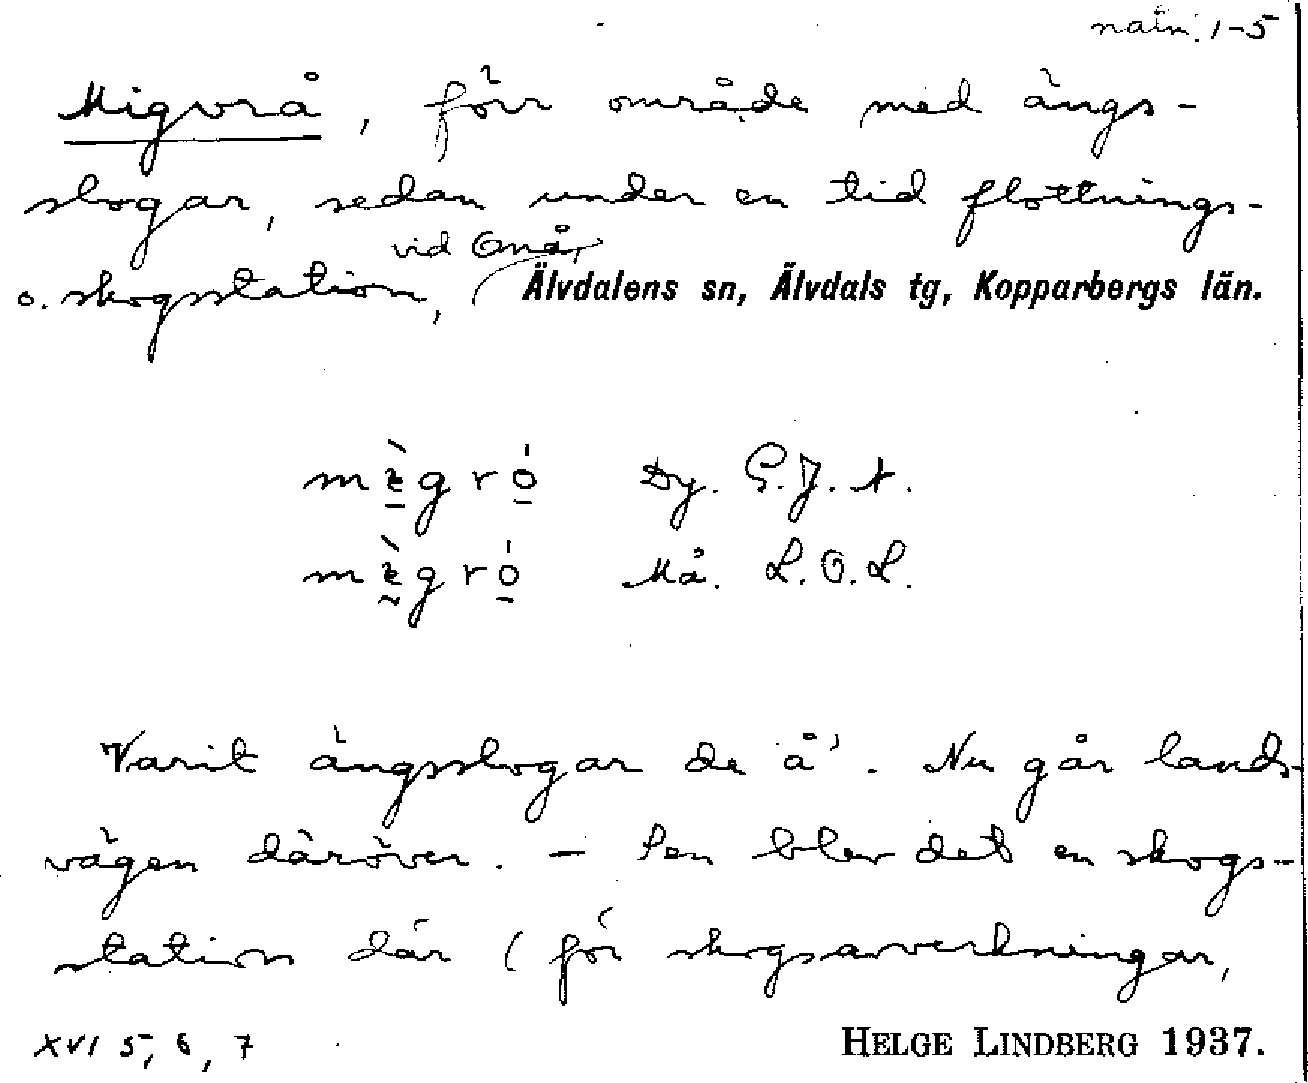 natn. 1-5
Migvrå, förr område med ängs-
slogar, sedan under en tid flottnings-
vid Gnå,
o. skogsstation, Älvdalens sn, Älvdals tg, Kopparbergs län.
Dy. G.J.A.
Må. L.O.L.
Varit ängsslogar de å'. Nu går lands-
vägen däröver. - Sen blev det en skogs-
station där (för skogsavverkningar,
XVI 5, 6, 7 HELGE LINDBERG 1937.